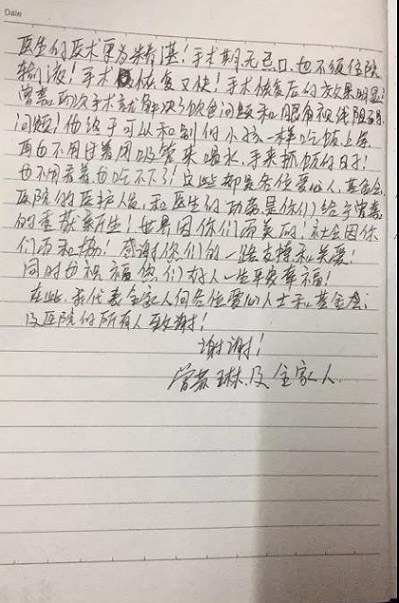 Date
医生的医术更为精湛！手术期无忌口，也不须住院
输液！手术 恢复又快！手术恢复后的效果明显！
曾嘉 两次手术就解决了饮食问题和眼角视线阻
问题！他终于可以和别的小孩一样吃饭上学，
再也不用过着用吸管来喝水，手来抓饭的日子！
也不用看着也吃不了！这些都是各位爱心人，基金会，
医院的医护人员，和医生的功劳是你们给予曾嘉
的重获新生！世界因你们而美丽！社会因你
们而和畅！感谢你们的一路支持和关爱！
同时也祝福您们好人一生平安幸福！
在此，我代表全家人向各位爱心人士和基金会，
及医院的所有人致谢！
谢谢！
曾 琳及全家人